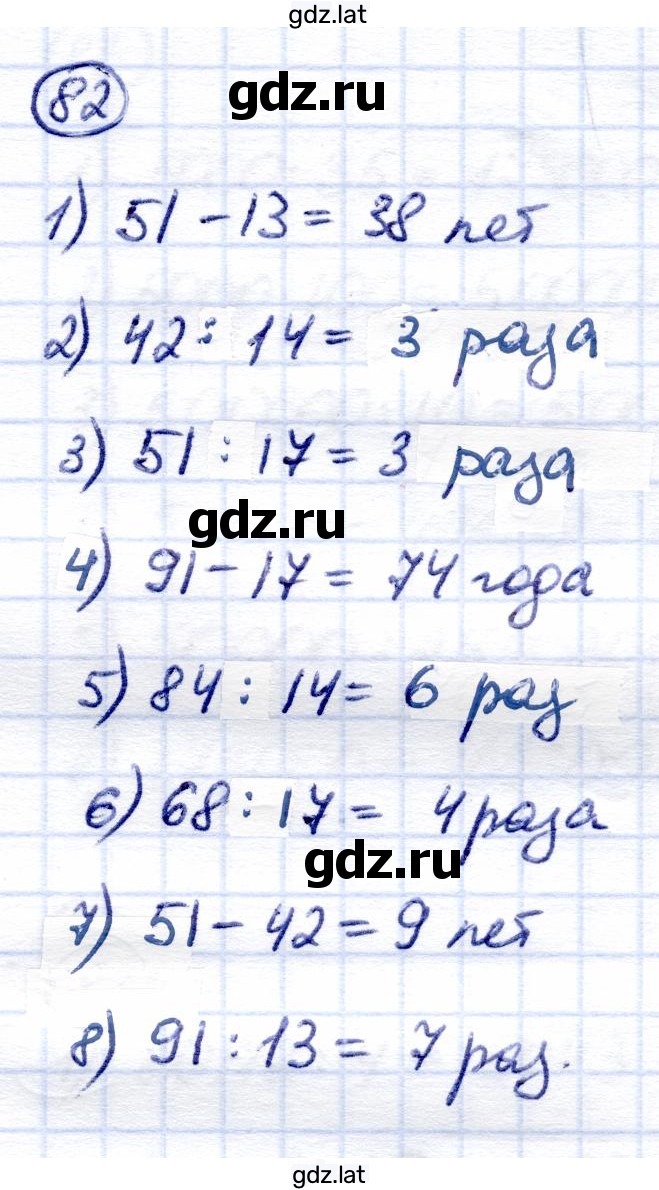 gdz.lat
82
gdz.ru
1) 51 - 13 = 38 лет
2) 42 : 14 = 3 раза
3) 51 : 17 = 3 раза
gdz.ru
4) 91 - 17 = 74 года
5) 84 : 14 = 6 раз
6) 68 : 17 = 4 раза
gdz.ru
7) 51 - 42 = 9 лет
8) 91 : 13 = 7 раз.
gdz.lat